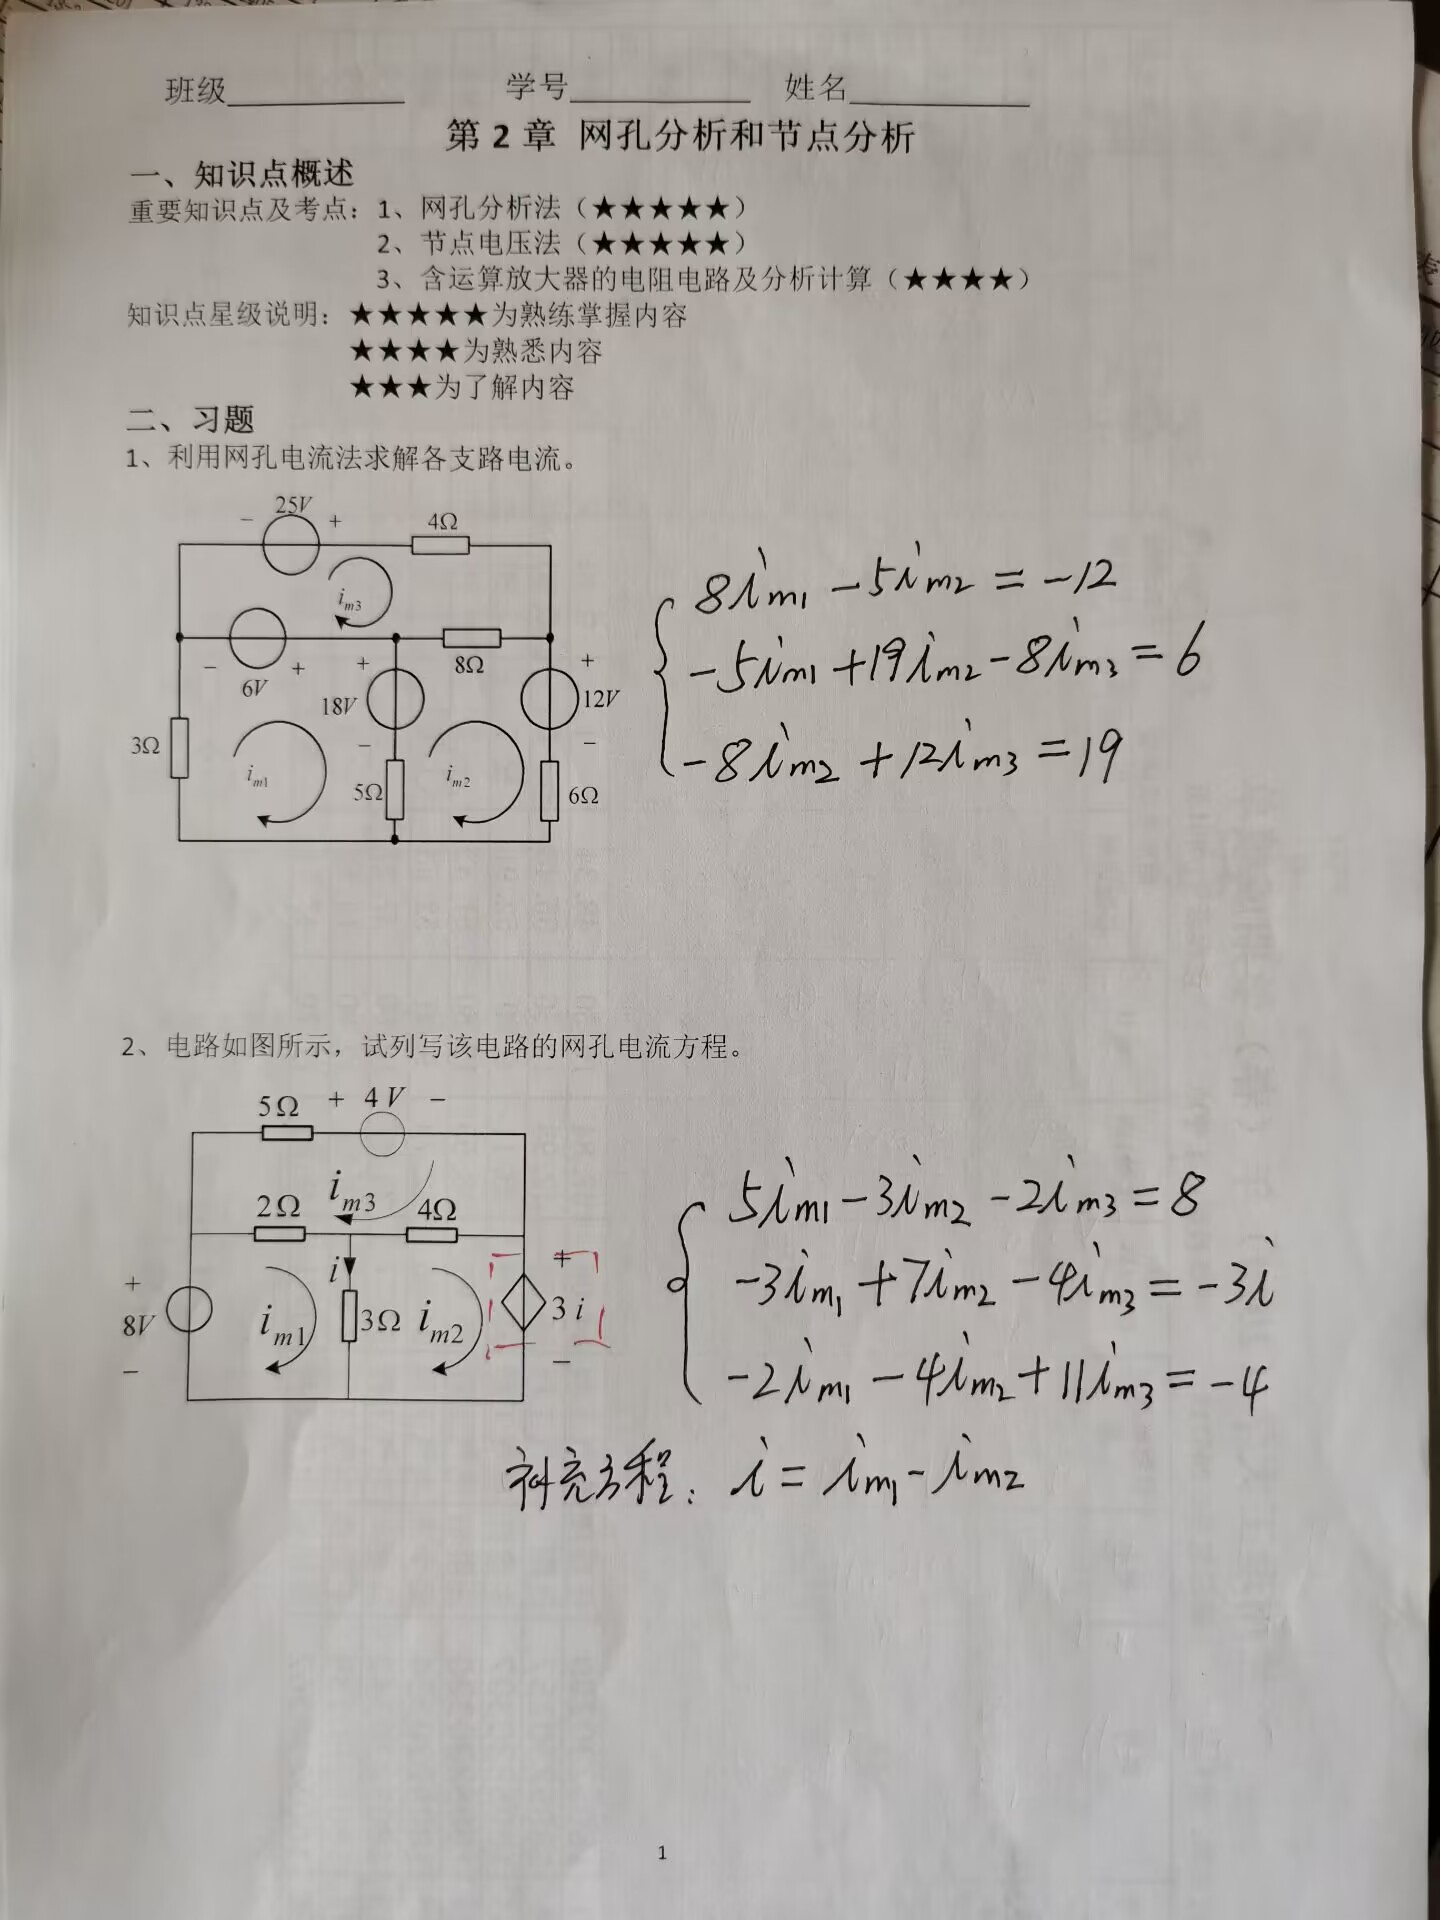 班级__________ 学号__________ 姓名__________
第 2 章 网孔分析和节点分析
一、知识点概述
重要知识点及考点：1、网孔分析法（★★★★★）
2、节点电压法（★★★★★）
3、含运算放大器的电阻电路及分析计算（★★★★）
知识点星级说明：★★★★★为熟练掌握内容
★★★★为熟悉内容
★★★为了解内容
二、习题
1、利用网孔电流法求解各支路电流。
25V
− +
4Ω
i_m3
− 6V +
8Ω
+ 18V −
+ 12V −
3Ω
i_m1
5Ω
i_m2
6Ω
8i_m1 − 5i_m2 = −12
−5i_m1 + 19i_m2 − 8i_m3 = 6
−8i_m2 + 12i_m3 = 19
2、电路如图所示，试列写该电路的网孔电流方程。
5Ω + 4V −
i_m3
2Ω
4Ω
i
+ 8V −
i_m1
3Ω
i_m2
+ 3i −
5i_m1 − 3i_m2 − 2i_m3 = 8
−3i_m1 + 7i_m2 − 4i_m3 = −3i
−2i_m1 − 4i_m2 + 11i_m3 = −4
补充方程：i = i_m1 − i_m2
1